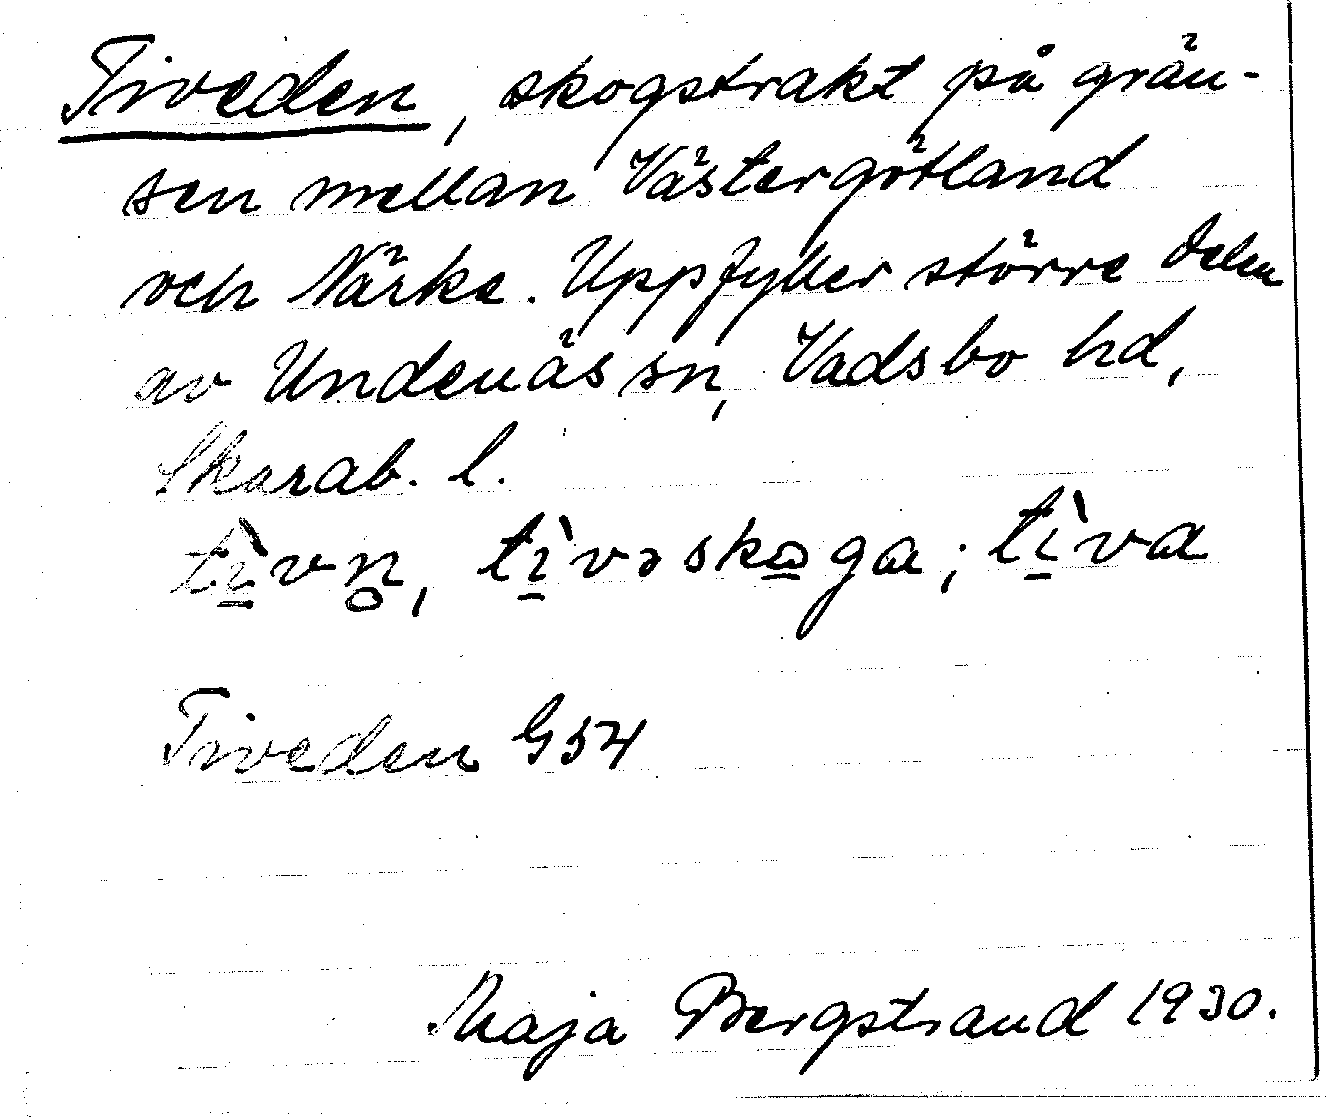 Tiveden, skogstrakt på grän-
sen mellan Västergötland
och Närke. Uppfyller större delen
av Undenäs sn, Vadsbo hd,
Skarab. l.
tì̠vn̥, tì̠vəskω̠ga; tì̠va
Tiveden G54
Maja Bergstrand 1930.